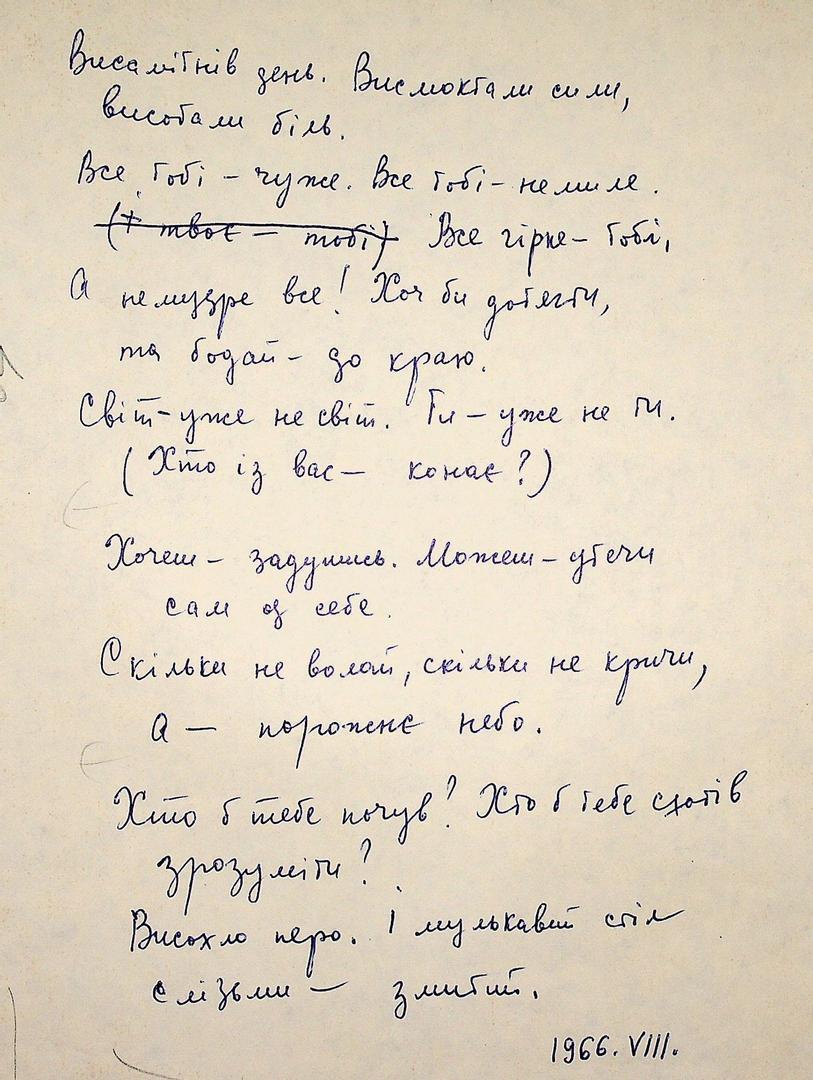 Висамітнів день. Висмоктали сили,
висотали біль.
Все тобі – чуже. Все тобі – немиле.
(І твоє – тобі) Все гірке – тобі,
А немудре все! Хоч би дотягти,
та бодай – до краю.
Світ – уже не світ. Ти – уже не ти.
(Хто із вас – конає?)
Хочеш – задушись. Можеш – утечи
сам од себе.
Скільки не волай, скільки не кричи,
А – порожнє небо.
Хто б тебе почув? Хто б тебе схотів
зрозуміти?
Висохло перо. І мулькавий стіл
слізьми – змитий.
1966. VIII.